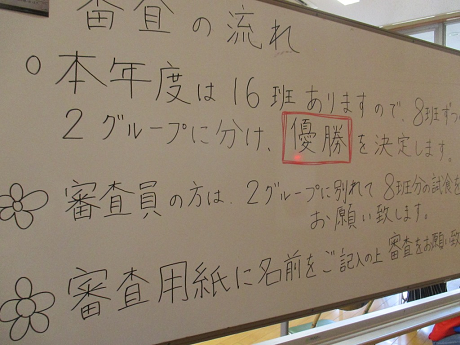 審査の流れ
○ 本年度は16班ありますので、8班ずつ
2グループに分け、優勝を決定します。
審査員の方は、2グループに別れて8班分の試食を
お願い致します。
審査用紙に名前をご記入の上審査をお願い致